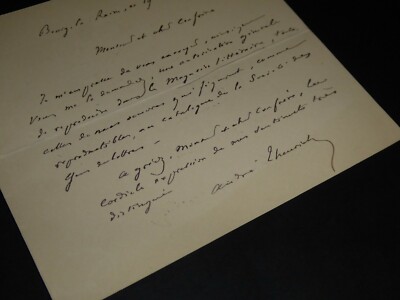 Bourg-la-Reine, 19
Monsieur et cher confrère
Je m'empresse de vous envoyer, ainsi que
vous me le demandez, une autorisation générale
de reproduire dans le Magasin littéraire, toutes
celles de mes œuvres qui figurent, comme
reproductibles, au catalogue de la Société des
Gens de lettres —
Agréez, Monsieur et cher confrère, la
cordiale expression de mes sentiments très
distingués
André Theuriet